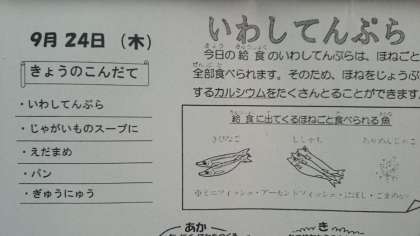 9月 24日 (木)
きょうのこんだて
・いわしてんぷら
・じゃがいものスープに
・えだまめ
・パン
・ぎゅうにゅう
いわしてんぷら
今日の給食のいわしてんぷらは、ほねごと
全部食べられます。そのため、ほねをじょうぶ
するカルシウムをたくさんとることができます
給食に出てくるほねごと食べられる魚
きびなご
ししゃも
ちりめんじゃこ
※ミニフィッシュ・アーモンドフィッシュ・にぼし・ごまめな
あか
き